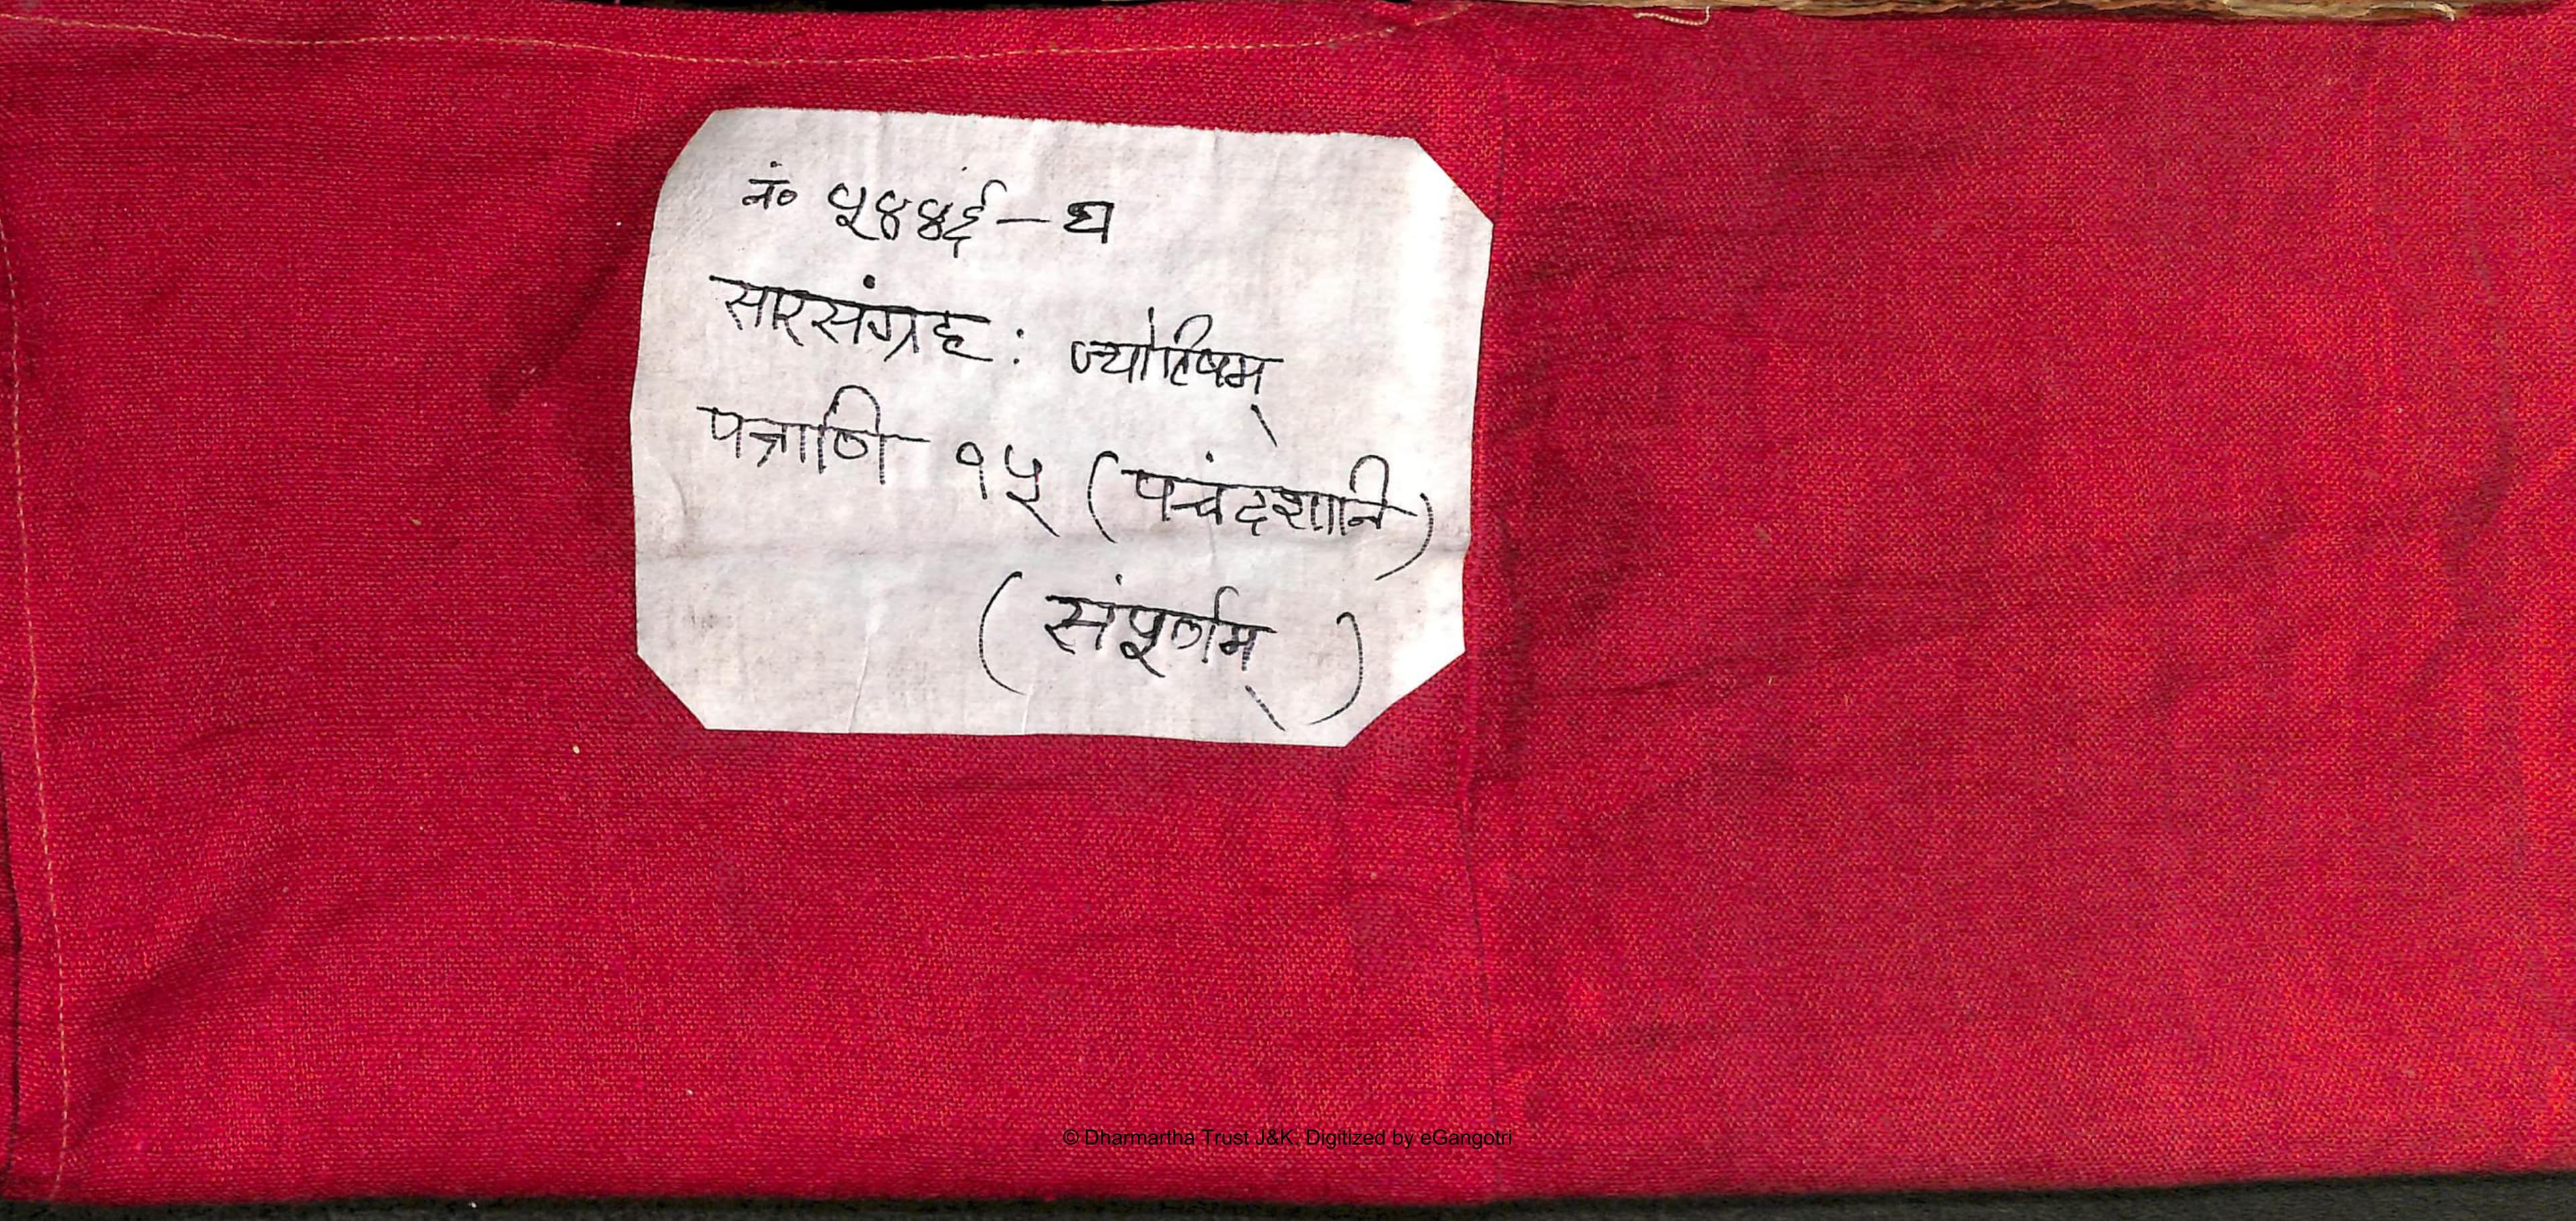 नं० ५४४६ — घ
सारसंग्रहः ज्योतिषम्
पत्राणि १५ (पचंदशानि)
(संपूर्णम्)
© Dharmartha Trust J&K. Digitized by eGangotri